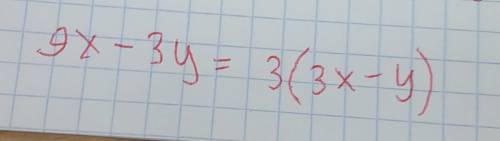 9x - 3y = 3(3x - y)